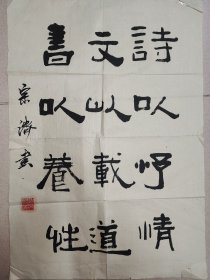 詩以抒情
文以載道
書以養性
宗濤書